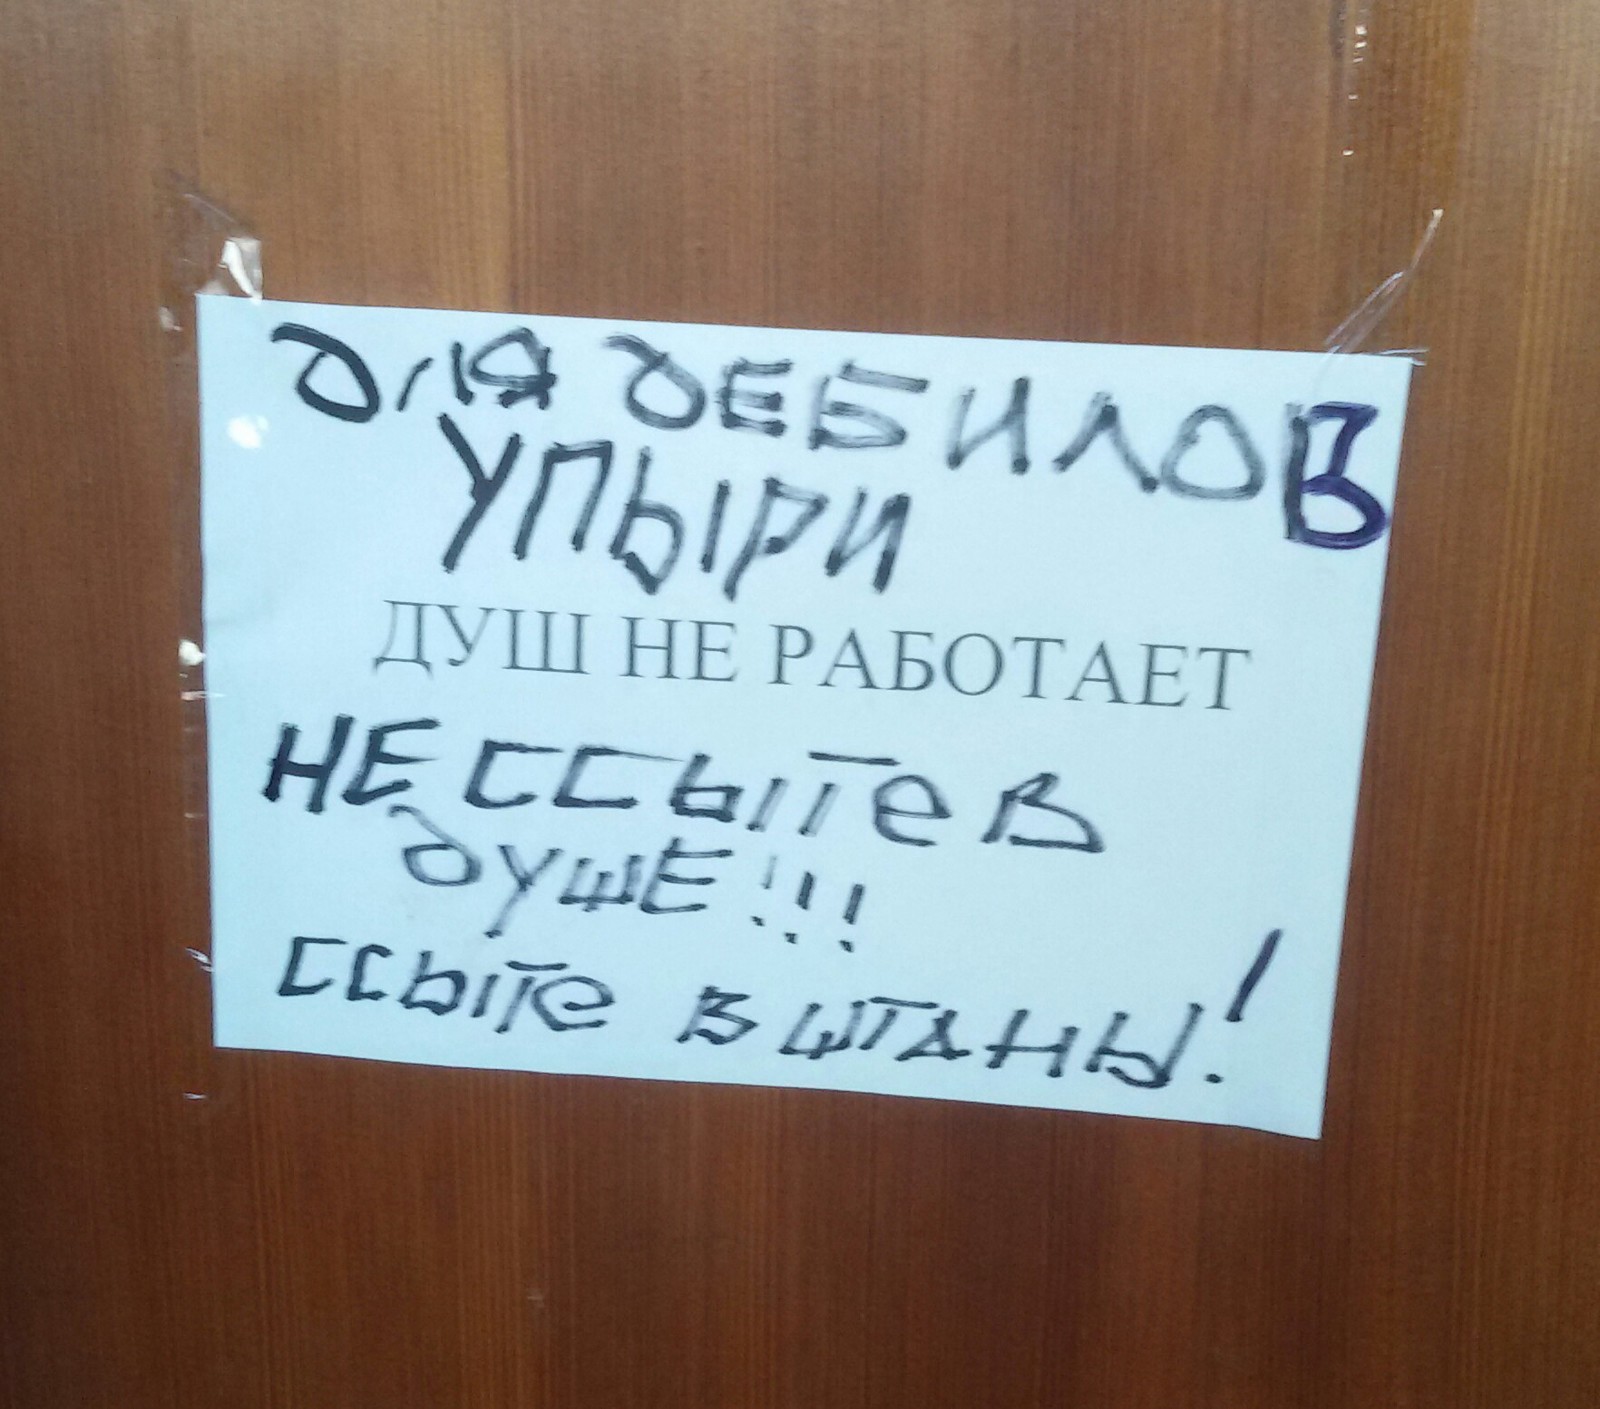 для дЕБИЛОВ
УПЫРИ
ДУШ НЕ РАБОТАЕТ
НЕ ССЫТе В
дУШЕ!!!
ССЫТе В ШТАНЫ!